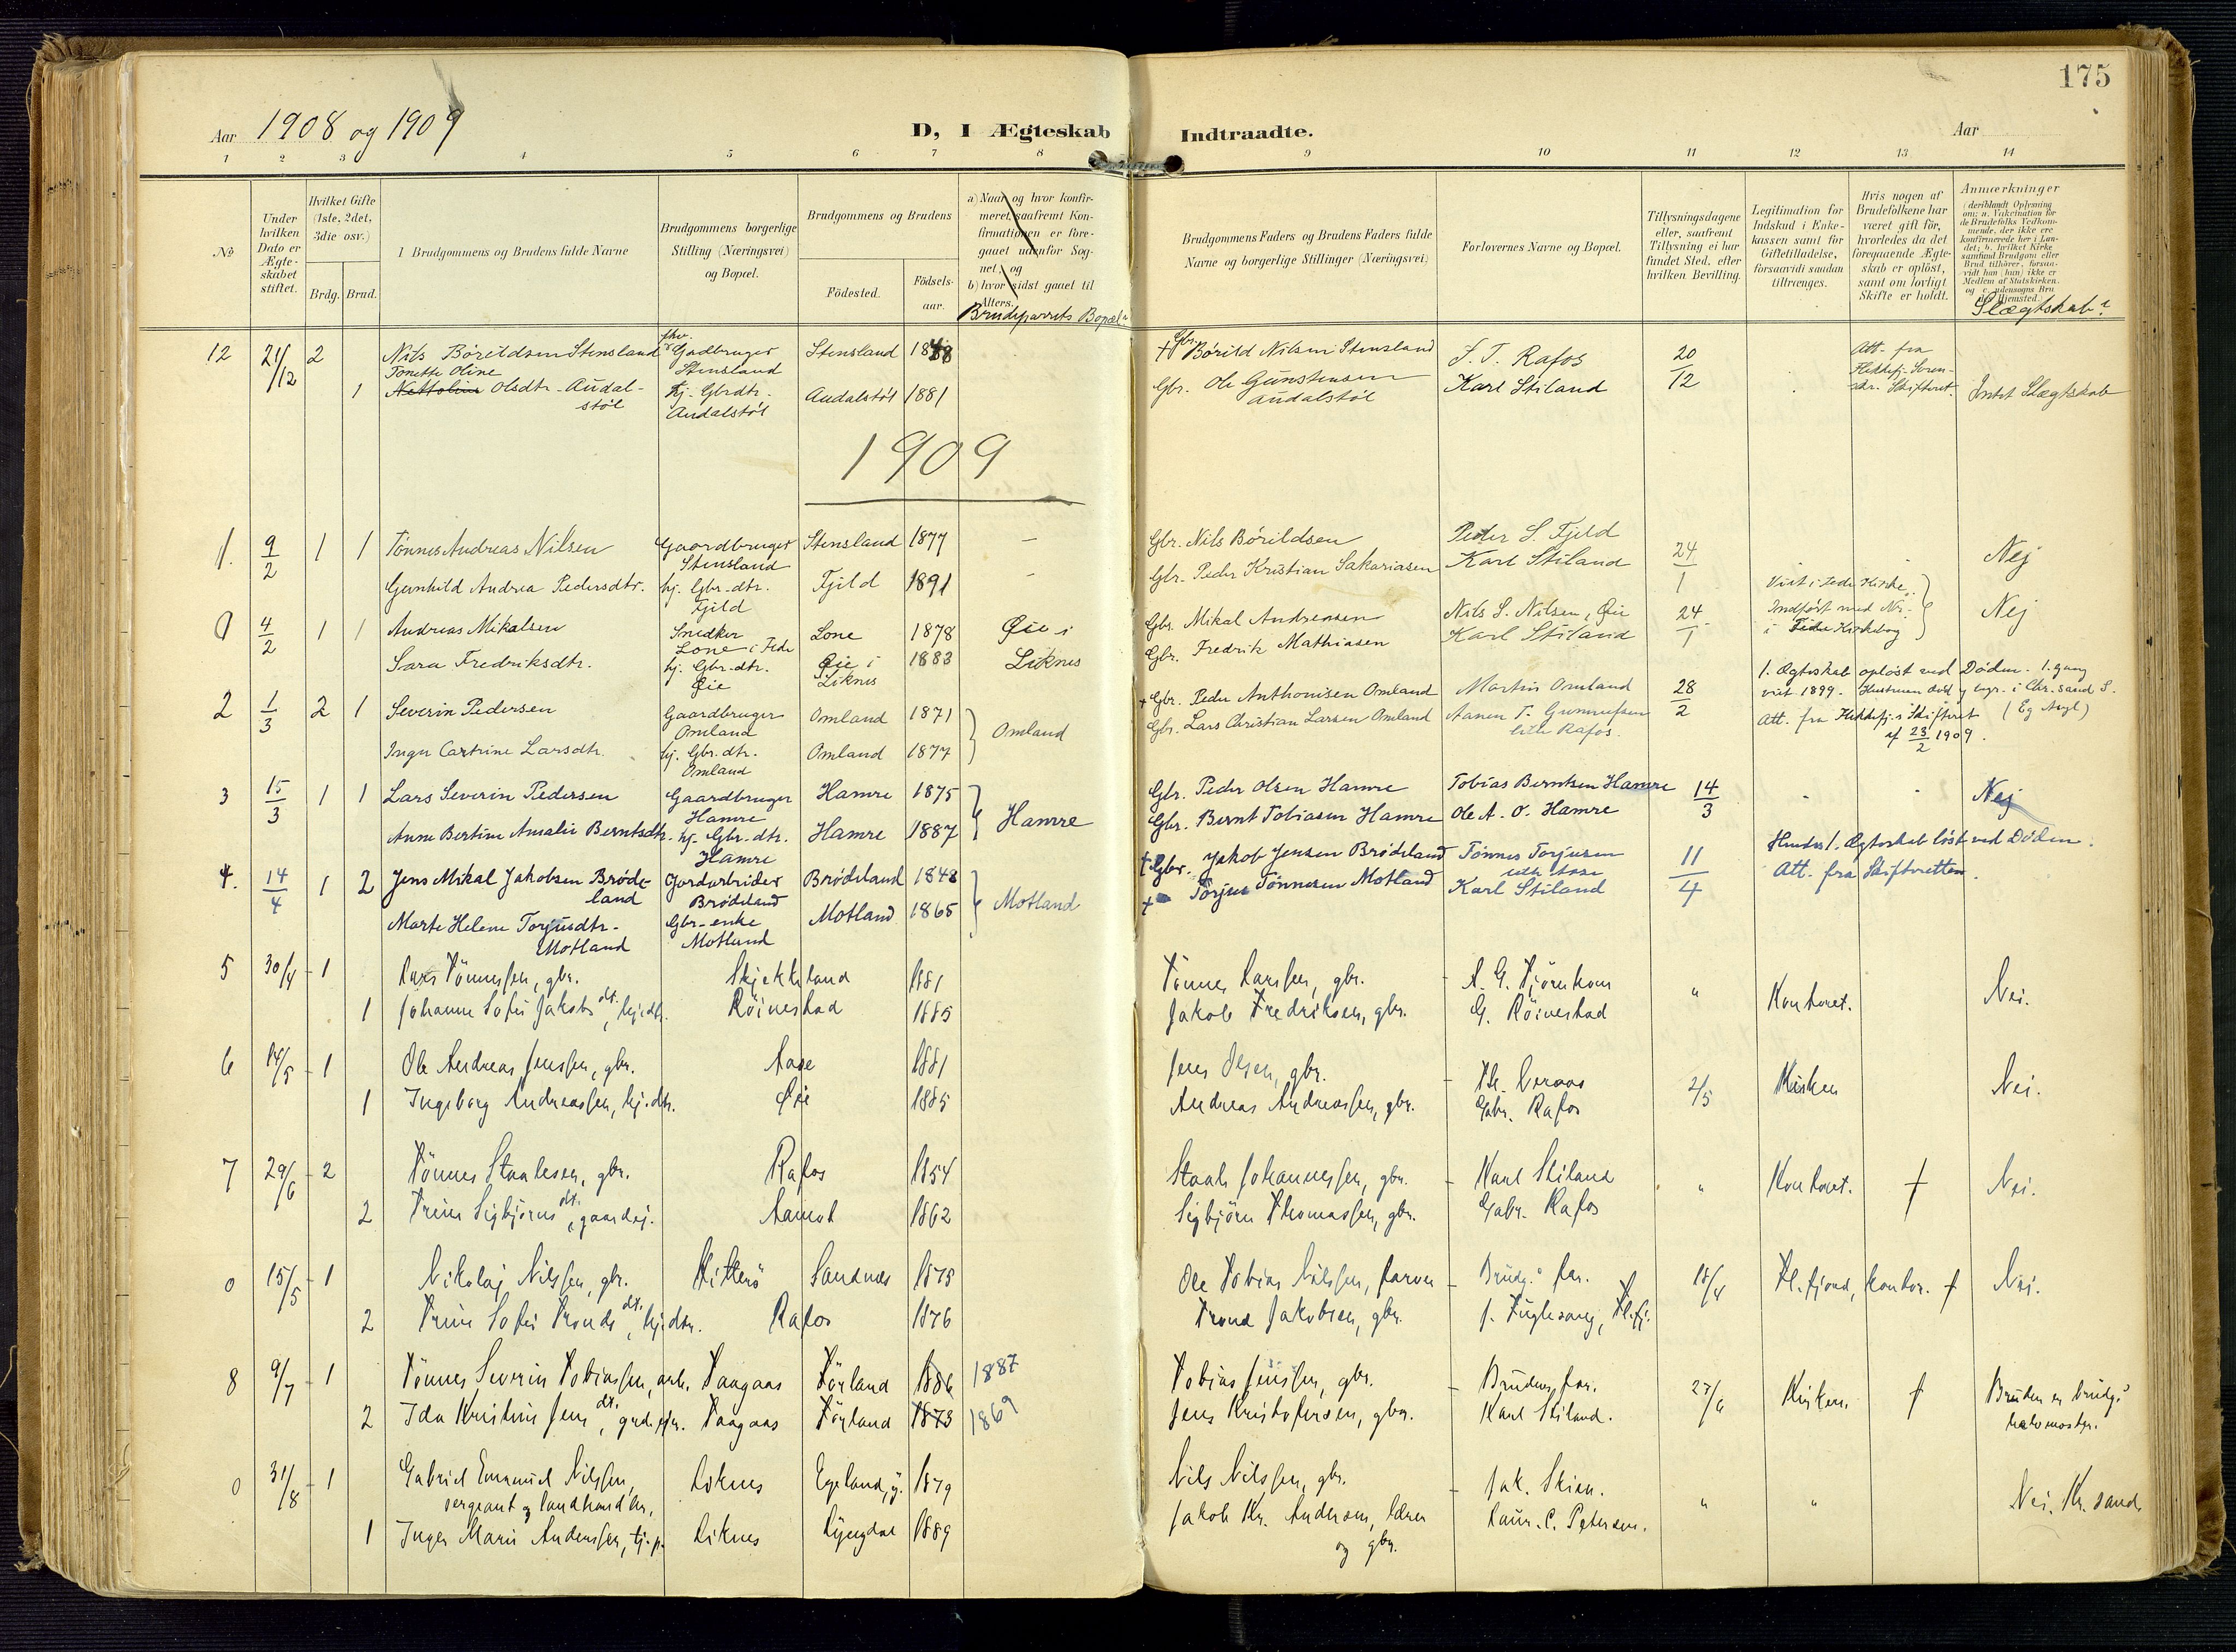 175
Aar 1908 og 1909
D, I Ægteskab Indtraadte.
Aar
1 2 3 4 5 6 7 8 9 10 11 12 13 14
No
Under hvilken Dato er Ægteskabet stiftet.
Hvilket Gifte (1ste, 2det, 3die osv.)
Brdg. Brud.
I Brudgommens og Brudens fulde Navne
Brudgommens borgerlige Stilling (Næringsvei) og Bopæl.
Brudgommens og Brudens
Fødested.
Fødselsaar.
a) Naar og hvor konfirmeret, saafremt Konfirmationen er foregaaet udenfor Sognet, og
b) hvor sidst gaaet til Alters.
Brudeparrets Bopæl?
Brudgommens Faders og Brudens Faders fulde Navne og borgerlige Stillinger (Næringsvei)
Forlovernes Navne og Bopæl.
Tillysningsdagene eller, saafremt Tillysning ei har fundet Sted, efter hvilken Bevilling.
Legitimation for Indskud i Enkekassen samt for Giftetilladelse, forsaavidt saadan tiltrænges.
Hvis nogen af Brudefolkene har været gift før, hvorledes da det foregaaende Ægteskab er opløst, samt om lovligt Skifte er holdt.
Anmærkninger
Slægtskab?
12 21/12 2 Nils Börildsen Stensland Gadbruger Stensland Stensland 1848 Börild Nilsen Stensland S. T. Rafos 20/12 Att. fra
1 Tonette Oline Olsdtr. Audalstöl hj. Gbrdtr. Audalstöl Audalstöl 1881 Gbr. Ole Gunstensen Audalstöl Karl Stiland Intet Slægtskab
1909
1. 9/2 1 1 Tönnes Andreas Nilsen Gaardbruger Stensland Stensland 1877 — Gbr. Nils Börildsen Peder S. Fjeld 24/1 Nej
Gunhild Andrea Pedersdtr. hj. Gbr-dtr. Fjeld Fjeld 1891 — Gbr. Peder Kristian Sakariasen Karl Stiland
0 4/2 1 1 Andreas Mikalsen Snedker Lone i Feda Lone 1878 Øie i Gbr. Mikal Andreasen Nils S. Nilsen, Øie 24/1 Viet i Feda Kirke. Indført med No. i Feda Kirkebog Nej
Sara Fredriksdtr. hj. Gbr-dtr. Øie Øie i Liknes 1883 Liknes Gbr. Fredrik Mathiasen Karl Stiland
2 1/3 2 1 Severin Pedersen Gaardbruger Omland Omland 1871 Omland + Gbr. Peder Anthonisen Omland Martin Omland 28/2 1. Ægteskab opløst ved Døden. 1. gang viet 1899.
Inger Cartrine Larsdtr. hj. Gbr. dtr. Omland Omland 1877 Gbr. Lars Christian Larsen Omland Aanen T. Rafos. Att. fra Skifteret 23/2 1909.
3 15/3 1 1 Lars Severin Pedersen Gaardbruger Hamre Hamre 1875 Hamre Gbr. Peder Olsen Hamre Tobias Berntsen Hamre 14/3 Nej
Anne Bertine Amalie Berntsdtr. hj. Gbr. dtr. Hamre Hamre 1887 Gbr. Bernt Tobiasen Hamre Ole A. O. Hamre
4. 14/4 1 2 Jens Mikal Jakobsen Brødeland Jordarbeider Brødeland Brødeland 1848 Motland + Gbr. Jakob Jensen Brødeland Tönnes Torjusen 11/4 Hendes 1. Ægteskab løst ved Døden. Att. fra Skifteretten.
Marte Helene Torjusdtr. Motland Gbr-enke Motland Motland 1865 + Torjus Tønnesen Motland Karl Stiland
5 30/4 1 Lars Tönnessen, gbr. Skjekkeland 1881 Tönnes Larssen, gbr. A. G. Tjömhom " Kontoret. Nei.
1 Johanne Sofie Jakobsdt., hj.dtr. Röinestad 1885 Jakob Fredriksen, gbr. G. Röinestad
6 14/5 1 Ole Andreas Jenssen, gbr. Aase 1881 Jens Olsen, gbr. 2/5 Kirken Nei.
1 Ingeborg Andreassen, hj.dtr. Øie 1885 Andreas Andreassen, gbr. Gabr. Rafos
7 29/6 2 Tönnes Staalesen, gbr. Rafos 1854 Staale Johannessen, gbr. Karl Stiland " Kontoret. + Nei.
2 Trine Sigbjörnsdt., gaardej. Aamot 1862 Sigbjörn Thomassen, gbr. Gabr. Rafos
0 15/5 1 Nikolaj Nilssen, gbr. Hitterö Sandnes 1875 Ole Tobias Nilssen, farver Brudg.s far. 18/4 Fl.fjord, kontor. + Nei.
2 Trine Sofie Trondsdt., hj.dtr. Rafos 1876 Trond Jakobsen, gbr. J. Fuglesang, Fl.fj.
8 9/7 1 Tönnes Severin Tobiassen, arb. Faagaas Förland 1886 1887 Tobias Jenssen, gbr. Brudens far. 27/6 Kirken. + Bruden er brudg.s halvmoster.
2 Ida Kristine Jensdt., Faagaas Förland 1873 1869 Jens Kristofersen, gbr. Karl Stiland.
0 31/8 1 Gabriel Emanuel Nilssen, sergeant og landhandler, Liknes Egeland, y. 1879 Nils Nilssen, gbr. Jak. Skien. " " Nei. Kr.sand.
1 Inger Marie Anderssen, tj.p. Liknes Lyngdal 1889 Jakob Kr. Andersen, lærer og gbr. Laur. C. Petersen.